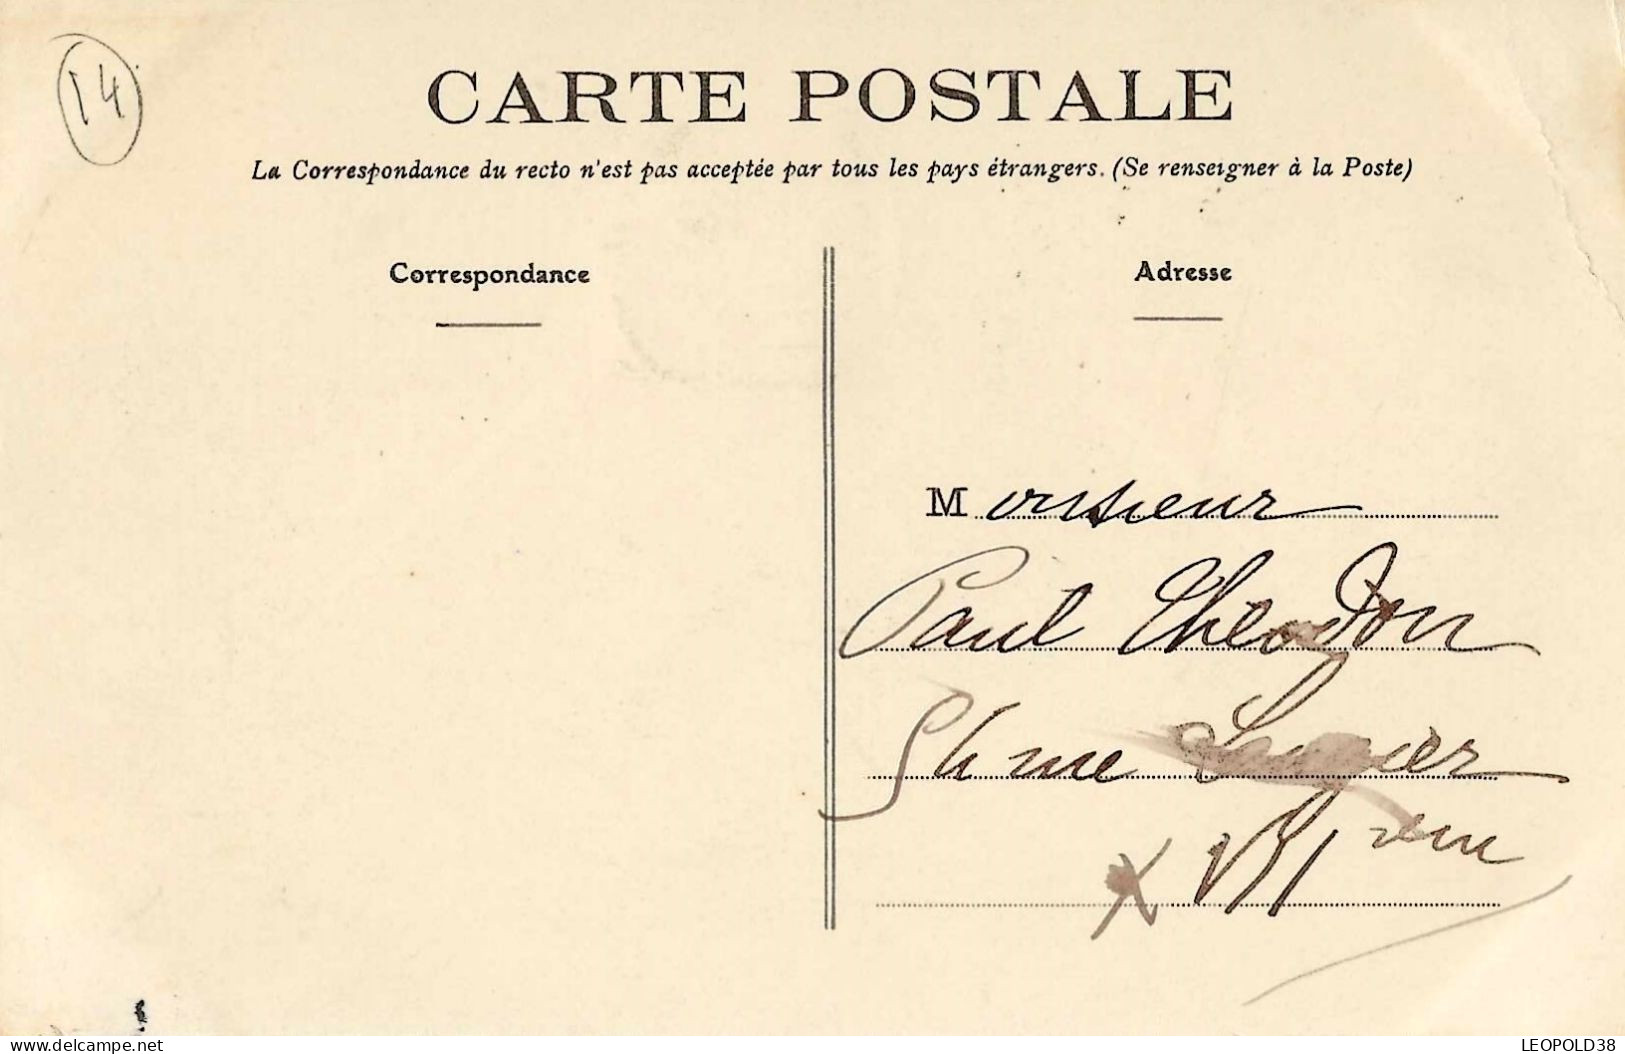 14
CARTE POSTALE
La Correspondance du recto n'est pas acceptée par tous les pays étrangers. (Se renseigner à la Poste)
Correspondance
Adresse
Monsieur
Paul Theodon
rue Laugier
XVII eme
delcampe.net
LEOPOLD38